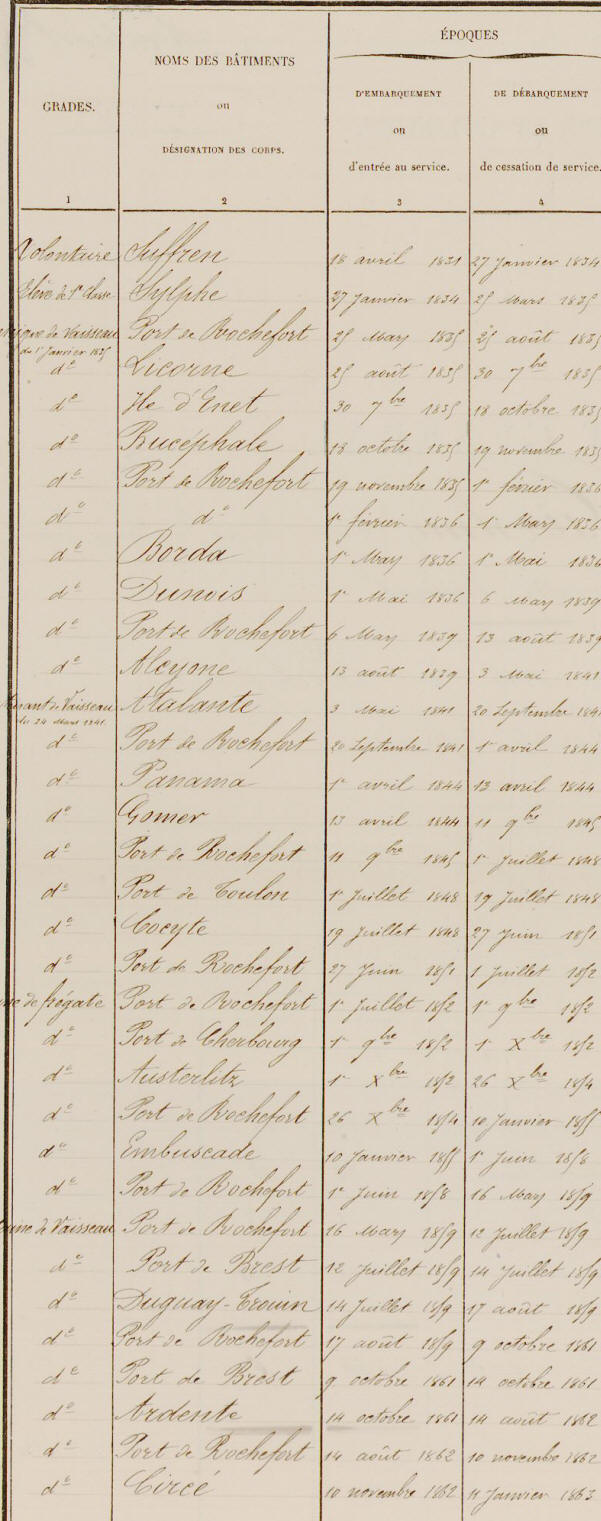 ÉPOQUES
GRADES.
NOMS DES BÂTIMENTS
ou
DÉSIGNATION DES CORPS.
D'EMBARQUEMENT
ou
d'entrée au service.
DE DÉBARQUEMENT
ou
de cessation de service.
1 2 3 4
Volontaire Suffren 18 avril 1831 27 Janvier 1834
Elève de 1e classe Sylphe 27 Janvier 1834 25 Mars 1835
de Vaisseau Port de Rochefort 25 Mars 1835 25 août 1835
du 1r Janvier 1835
do Licorne 25 août 1835 30 7bre 1835
do Ile d'Enet 30 7bre 1835 18 octobre 1835
do Bucéphale 18 octobre 1835 19 novembre 1835
do Port de Rochefort 19 novembre 1835 1r février 1836
do do 1r février 1836 1r Mars 1836
do Borda 1r Mars 1836 1r Mai 1836
do Dunois 1r Mai 1836 6 Mars 1839
do Port de Rochefort 6 Mars 1839 13 août 1839
do Alcyone 13 août 1839 3 Mai 1841
de Vaisseau Atalante 3 Mai 1841 20 Septembre 1841
du 24 Mars 1841
do Port de Rochefort 20 Septembre 1841 1r avril 1844
do Panama 1r avril 1844 13 avril 1844
do Gomer 13 avril 1844 11 9bre 1845
do Port de Rochefort 11 9bre 1845 1r Juillet 1848
do Port de Toulon 1r Juillet 1848 19 Juillet 1848
do Cocyte 19 Juillet 1848 27 Juin 1851
do Port de Rochefort 27 Juin 1851 1 Juillet 1852
de frégate Port de Rochefort 1r Juillet 1852 1r 9bre 1852
do Port de Cherbourg 1r 9bre 1852 1r Xbre 1852
do Austerlitz 1r Xbre 1852 26 Xbre 1854
do Port de Rochefort 26 Xbre 1854 10 Janvier 1855
do Embuscade 10 Janvier 1855 1r Juin 1858
do Port de Rochefort 1r Juin 1858 16 Mars 1859
de Vaisseau Port de Rochefort 16 Mars 1859 12 Juillet 1859
do Port de Brest 12 Juillet 1859 14 Juillet 1859
do Duguay-Trouin 14 Juillet 1859 17 août 1859
do Port de Rochefort 17 août 1859 9 octobre 1861
do Port de Brest 9 octobre 1861 14 octobre 1861
do Ardente 14 octobre 1861 14 août 1862
do Port de Rochefort 14 août 1862 10 novembre 1862
do Circé 10 novembre 1862 11 Janvier 1863